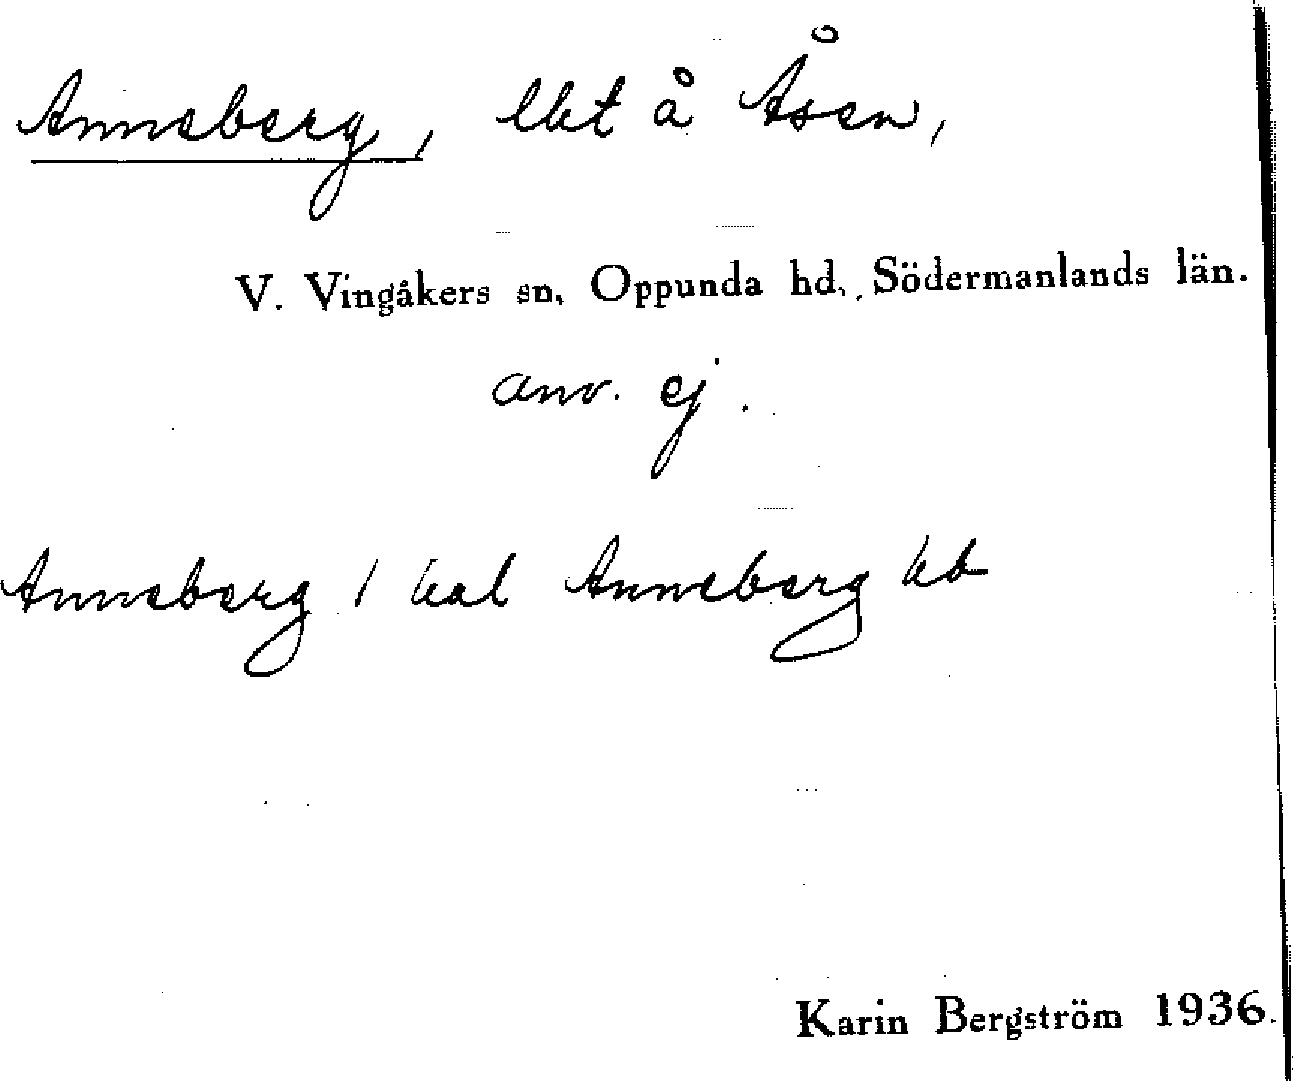 Anneberg, lht å Åsen,
V. Vingåkers sn, Oppunda hd, Södermanlands län.
anv. ej.
Anneberg / hal Anneberg kb
Karin Bergström 1936.